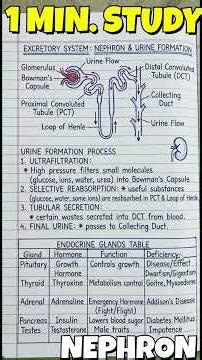 1 MIN. STUDY
EXCRETORY SYSTEM: NEPHRON & URINE FORMATION
Glomerulus
Urine Flow
Distal Convoluted
Tubule (DCT)
Bowman's
Capsule
Collecting
Duct
Proximal Convoluted
Tubule (PCT)
Loop of Henle
Urine Flow
URINE FORMATION PROCESS
1. ULTRAFILTRATION:
* High pressure filters small molecules
(glucose, ions, water, urea) into Bowman's Capsule
2. SELECTIVE REABSORPTION: * useful substances
(glucose, water, some ions) are reabsorbed in PCT & Loop of Henle
3. TUBULAR SECRETION:
* certain wastes secreted into DCT from blood.
4. FINAL URINE: * passes to Collecting Duct.
ENDOCRINE GLANDS TABLE
Gland Hormone Function Deficiency-
Pituitary Growth Hormone Controls growth Disease/Effect
Dwarfism/Gigantism
Thyroid Thyroxine Metabolism control Goitre, Myxoedema
Adrenal Adrenaline Emergency Hormone (Fight/Flight) Addison's Disease
Pancreas Insulin Lowers blood sugar Diabetes Mellitus
Testes Testosterone Male traits Impotence
NEPHRON